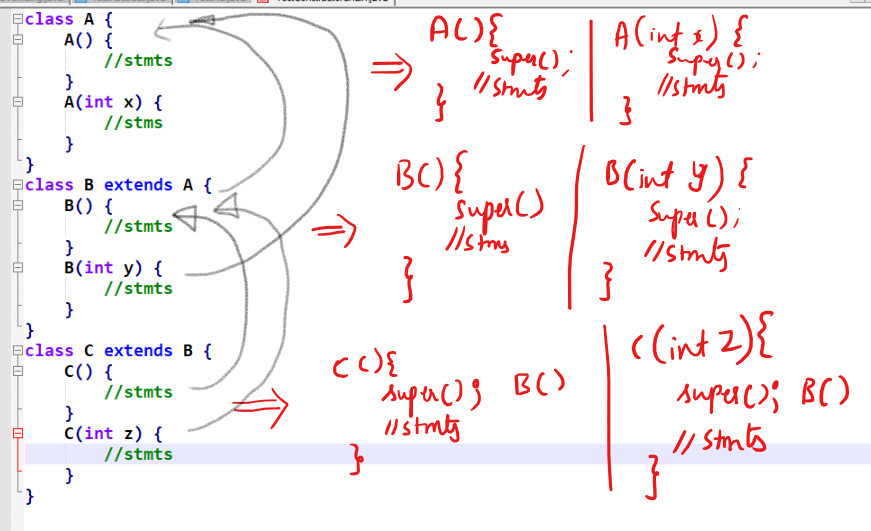 class A {
A() {
//stmts
}
A(int x) {
//stms
}
}
class B extends A {
B() {
//stmts
}
B(int y) {
//stmts
}
}
class C extends B {
C() {
//stmts
}
C(int z) {
//stmts
}
}
A(){
super();
//stmts
}
A(int x) {
super();
//stmts
}
B(){
super()
//stms
}
B(int y) {
super();
//stmts
}
C(){
super(); B()
//stmts
}
C(int z){
super(); B()
//stmts
}